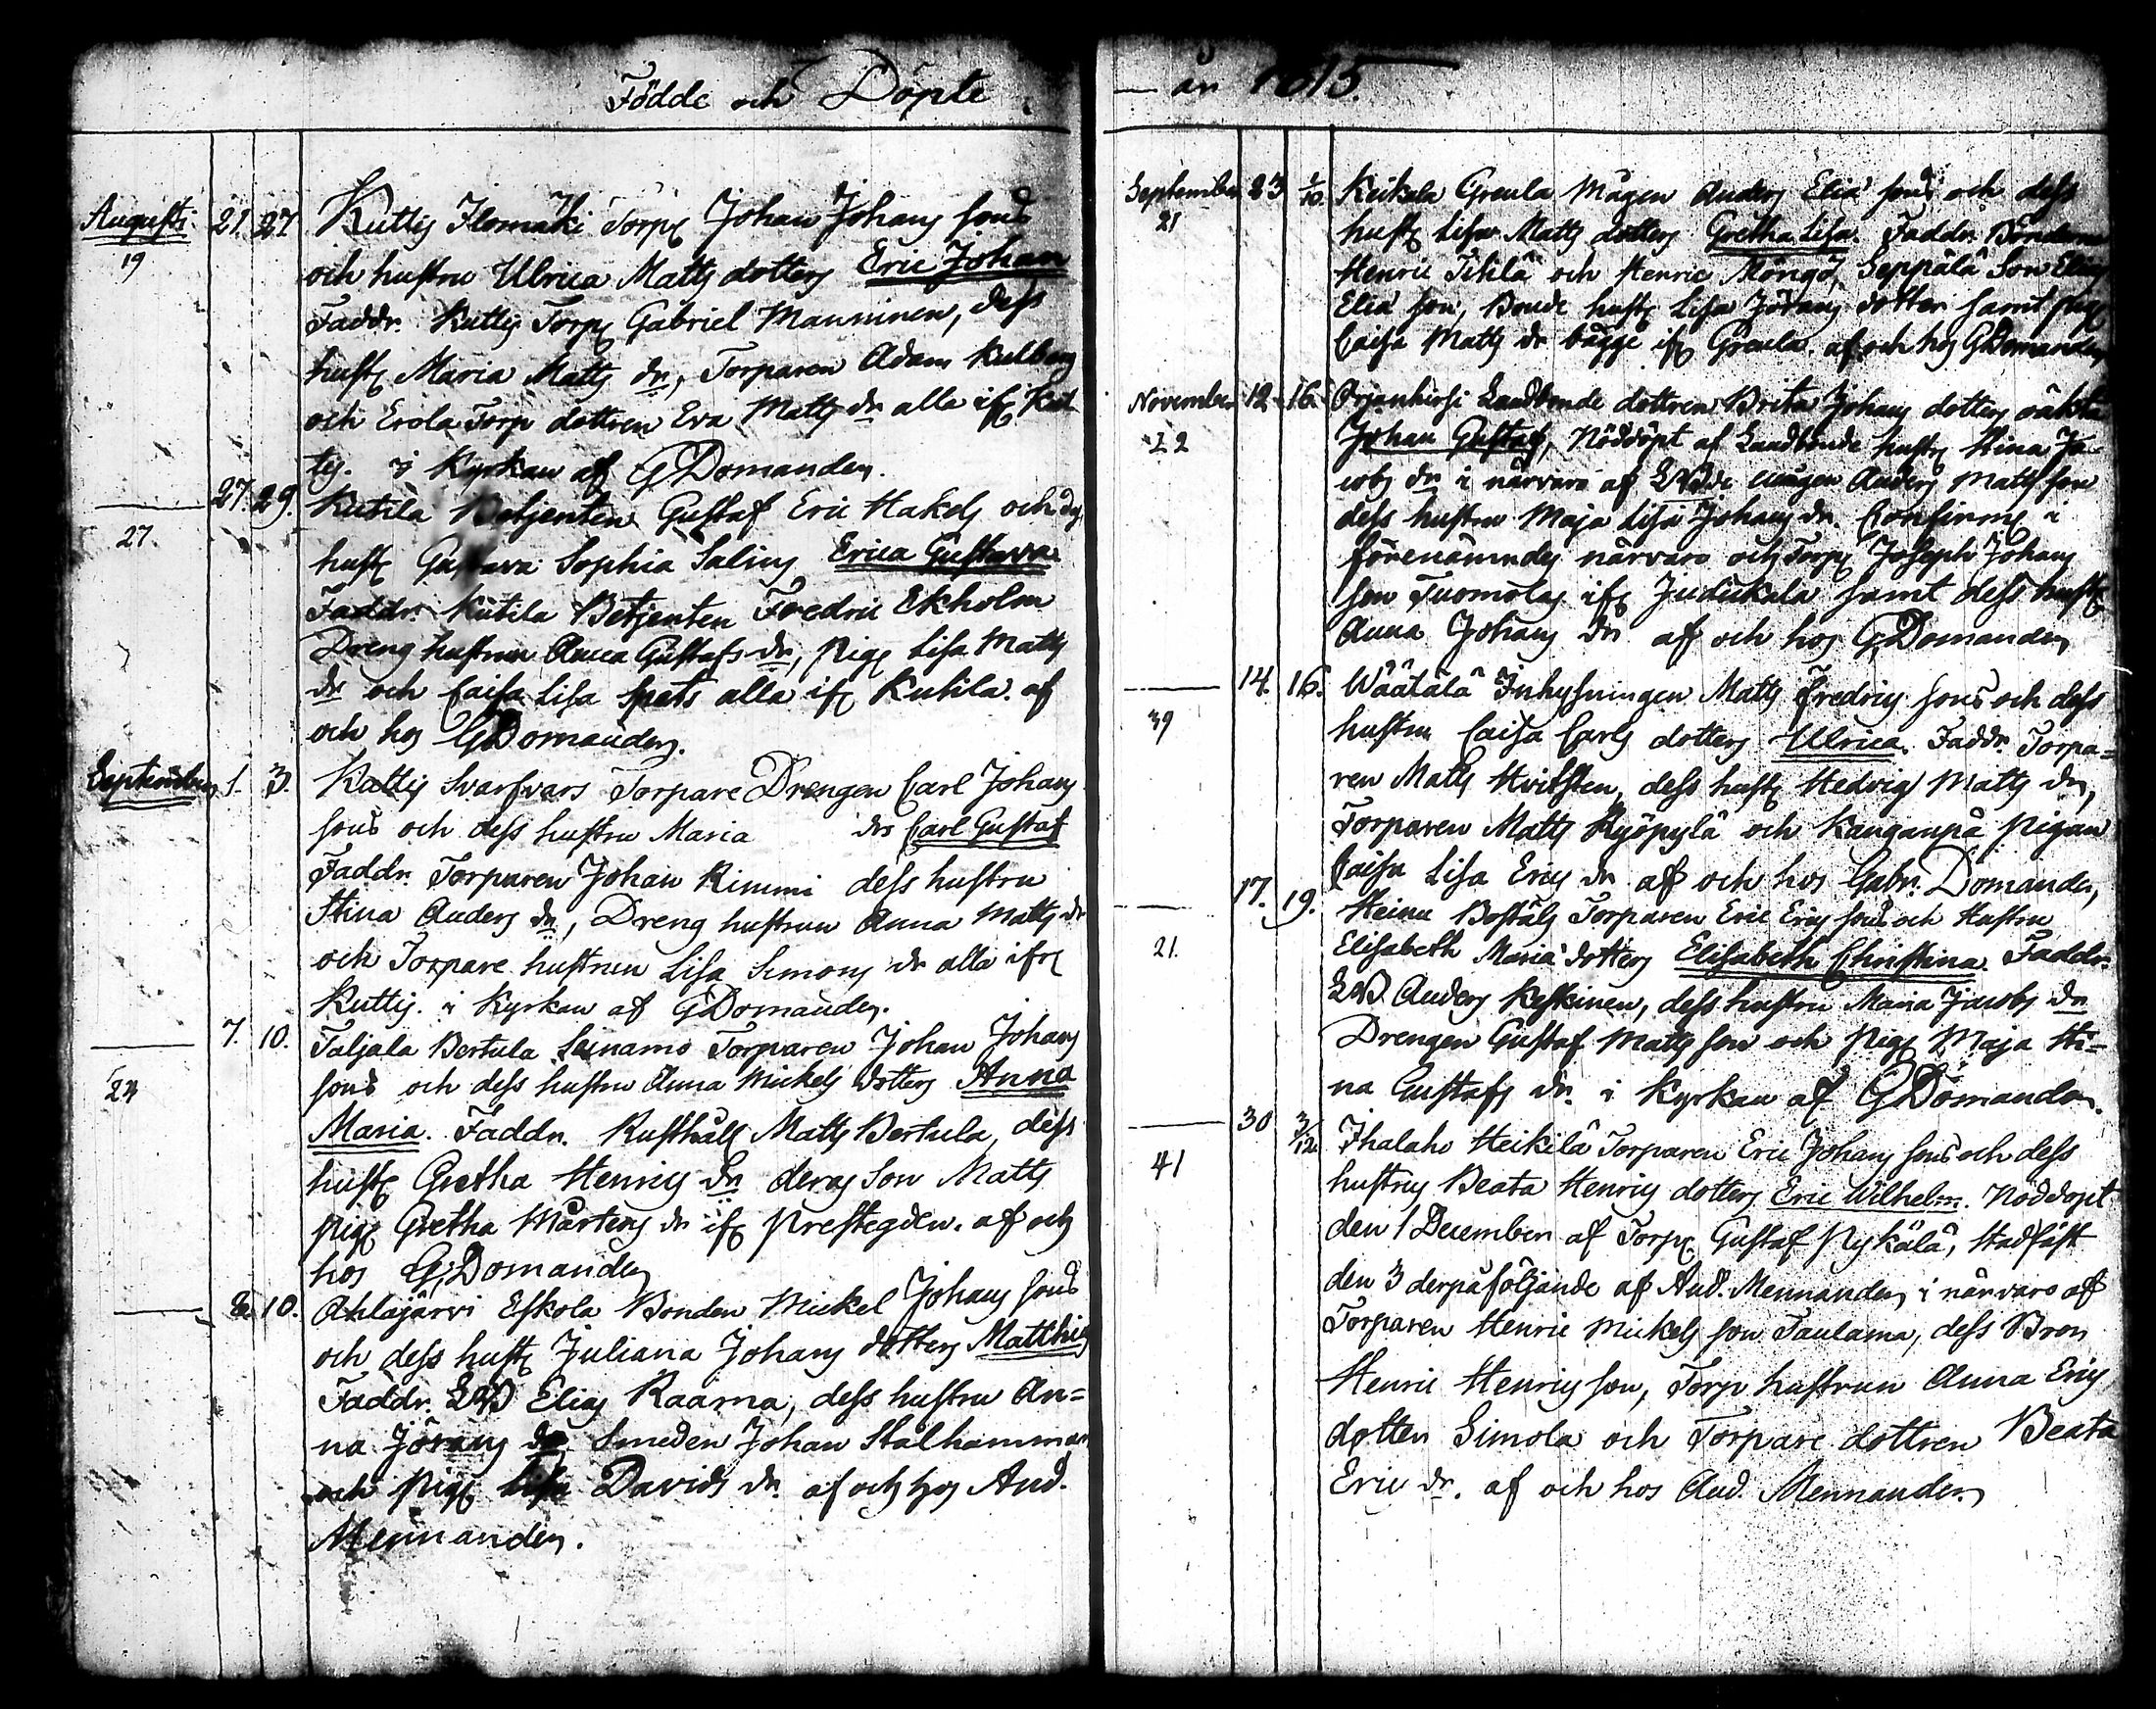 Födde och Döpte
Augusti 21. 27 Kuttis Ilomäki Torp. Johan Johans sons
19 och hustru Ulrica Matts dotters Eric Johan
Faddr. Kuttis Torp. Gabriel Manninen, dess
hust. Maria Matts dr, Torparen Adam Kulberg
och Erola Torp dottren Eva Matts dr alla if. Kut-
tis. i Kyrkan af GDomander.
27. 29. Kutila Betjenten Gustaf Eric Hakels och ds
27. hust. Gustava Sophia Salins Erica Gustava
Faddr. Kutila Betjenten Fredric Ekholm
Dreng hustrun Anna Gustafs dr, pig. Lisa Matts
dr och Caisa Lisa Spets alla if. Kutila. af
och hos GDomander.
September 1. 3. Kuttis Svarfvars Torpare Drengen Carl Johans
sons och dess hustru Maria drs Carl Gustaf
Faddr. Torparen Johan Rimmi dess hustru
Stina Anders dr, Dreng hustrun Anna Matts dr
och Torpare hustrun Lisa Simons dr alla ifr.
Kuttis. i Kyrkan af GDomander.
7. 10. Taljala Bertula Leinamo Torparen Johan Johans
24 sons och dess hustru Anna Mickels dotters Anna
Maria. Faddr. Rusthåll. Matts Bertula, dess
hust. Gretha Henrics dr deras Son Matts
pig. Gretha Mårtens dr if. Prestegden. af och
hos G. Domander
8. 10. Ahlajärvi Eskola Bonden Mickel Johans sons
och dess hust. Juliana Johans dotters Matthis
Faddr. LB Elias Raama, dess hustru An=
na Jörans dr Smeden Johan Stålhammar
och pig. Lisa Davids dr. af och hos And.
Mennander.
år 1815.
September 23 1/10. Keikala Greula Mågen Anders Eliæ sons och dess
21 hust. Lisa Matts dotters Gretha Lisa. Faddr. Bönderne
Henric Tihlä och Henric Möngö, Seppälä Son Elias
Eliæ son, Bonde hust. Lisa Jörans dotter samt pig.
Caisa Matts dr bägge if. Greula. af och hos GDomander
November 12. 16. Orjanhirsi Landbonde dottren Brita Johans dotters oäkta
22 Johan Gustaf, Nöddöpt af Landbonde hustr. Stina Ja-
cobs dr i närvaro af LBde mågen Anders Matts son
dess hustru Maja Lisa Johans dr. Confirm. i
förenämndes närvaro och Torp. Joseph Johans
son Tuomolas if. Judickala samt dess hust.
Anna Johans dr af och hos G. Domander
14. 16. Wäätälä Inhysningen Matts Fredrics sons och dess
39 hustru Caisa Carls dotters Ulrica. Faddr. Torpa=
ren Matts Hvitsten, dess hust. Hedvig Matts dr,
Torparen Matts Kyöpylä och Kanganpä pigan
Caisa Lisa Erics dr af och hos Gabr. Domander,
17. 19. Heinu Boställs Torparen Eric Erics sons och Hustru
21. Elisabeth Mariæ dotters Elisabeth Christina. Faddr.
LB. Anders Keskinen, dess hustru Maria Jacobs dr
Drengen Gustaf Matts son och pig. Maja Sti=
na Gustafs dr. i Kyrkan af GDomander.
30 3/12. Ihalaho Heikilä Torparen Eric Johans sons och dess
41 hustrus Beata Henrics dotters Eric Wilhelm. Nöddöpt
den 1 December af Torp. Gustaf Pyskälä, stadfäst
den 3 derpåföljande af And. Mennander, i närvaro af
Torparen Henric Mickels son Taulama, dess Bror
Henric Henrics son, Torp hustrun Anna Erics
dotter Simola och Torpare dottren Beata
Eric dr. af och hos And. Mennander